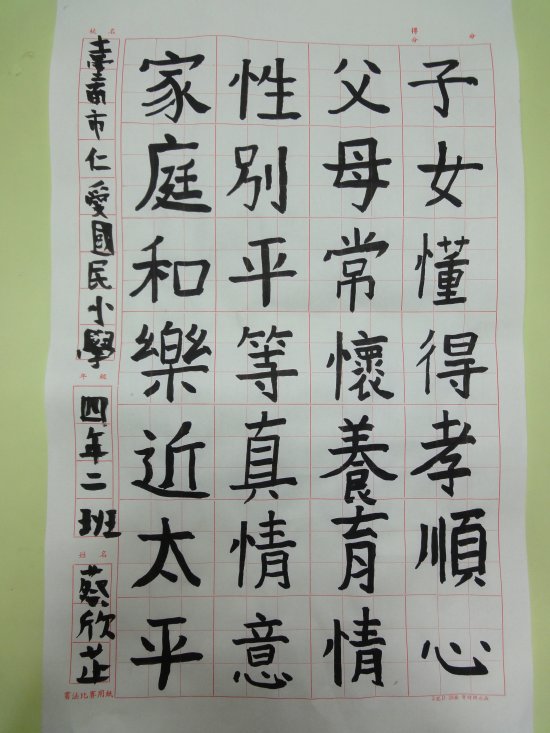 得分
子女懂得孝順心
父母常懷養育情
性別平等真情意
家庭和樂近太平
校名
臺南市仁愛國民小學
年級
四年二班
姓名
蔡欣芷
書法比賽用紙